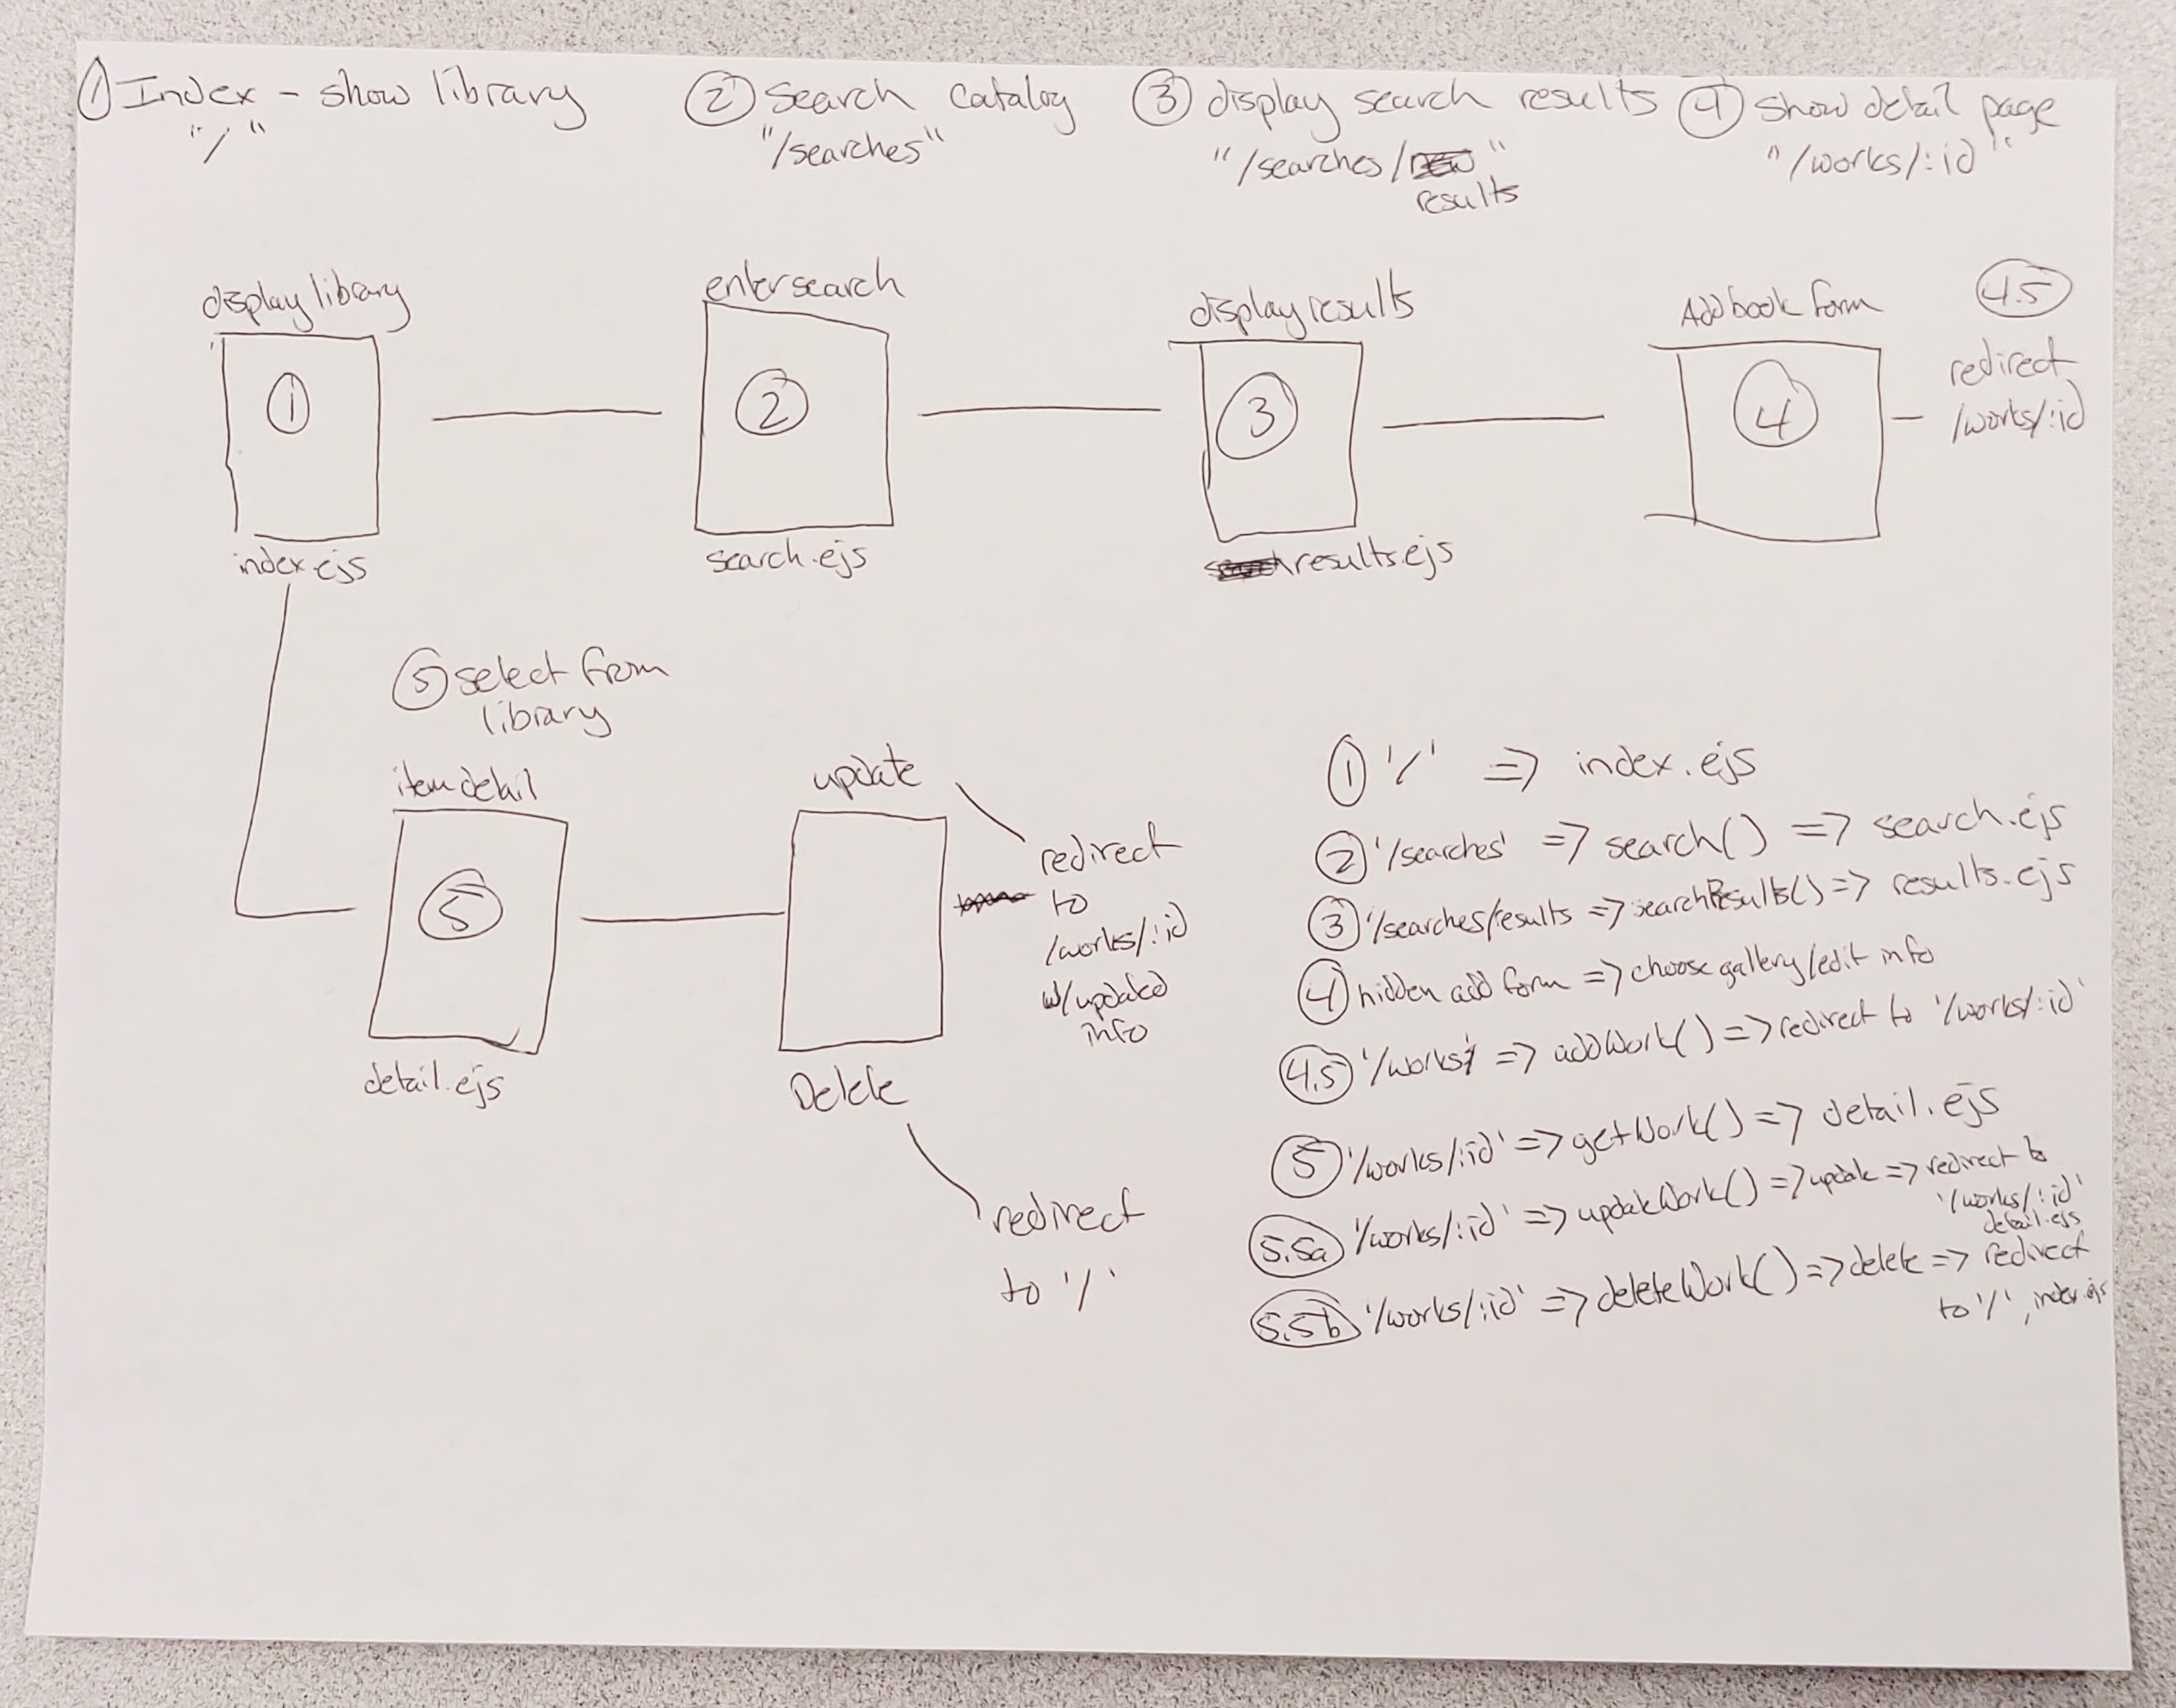 ① Index - show library
"/"
② Search Catalog
"/searches"
③ display search results
"/searches/new"
results
④ show detail page
"/works/:id"
display library
①
index.ejs
enter search
②
search.ejs
display results
③
search results.ejs
Add book form
④
4.5
redirect
/works/:id
⑤ select from
library
item detail
⑤
detail.ejs
update
redirect
to
/works/:id
w/updated
info
Delete
redirect
to '/'
① '/' => index.ejs
② '/searches' => search() => search.ejs
③ '/searches/results => searchResults() => results.ejs
④ hidden add form => choose gallery/edit info
4.5 '/works' => addWork() => redirect to '/works/:id'
⑤ '/works/:id' => getWork() => detail.ejs
5.5a '/works/:id' => updateWork() => update => redirect to
'/works/:id'
detail.ejs
5.5b '/works/:id' => deleteWork() => delete => redirect
to '/', index.ejs